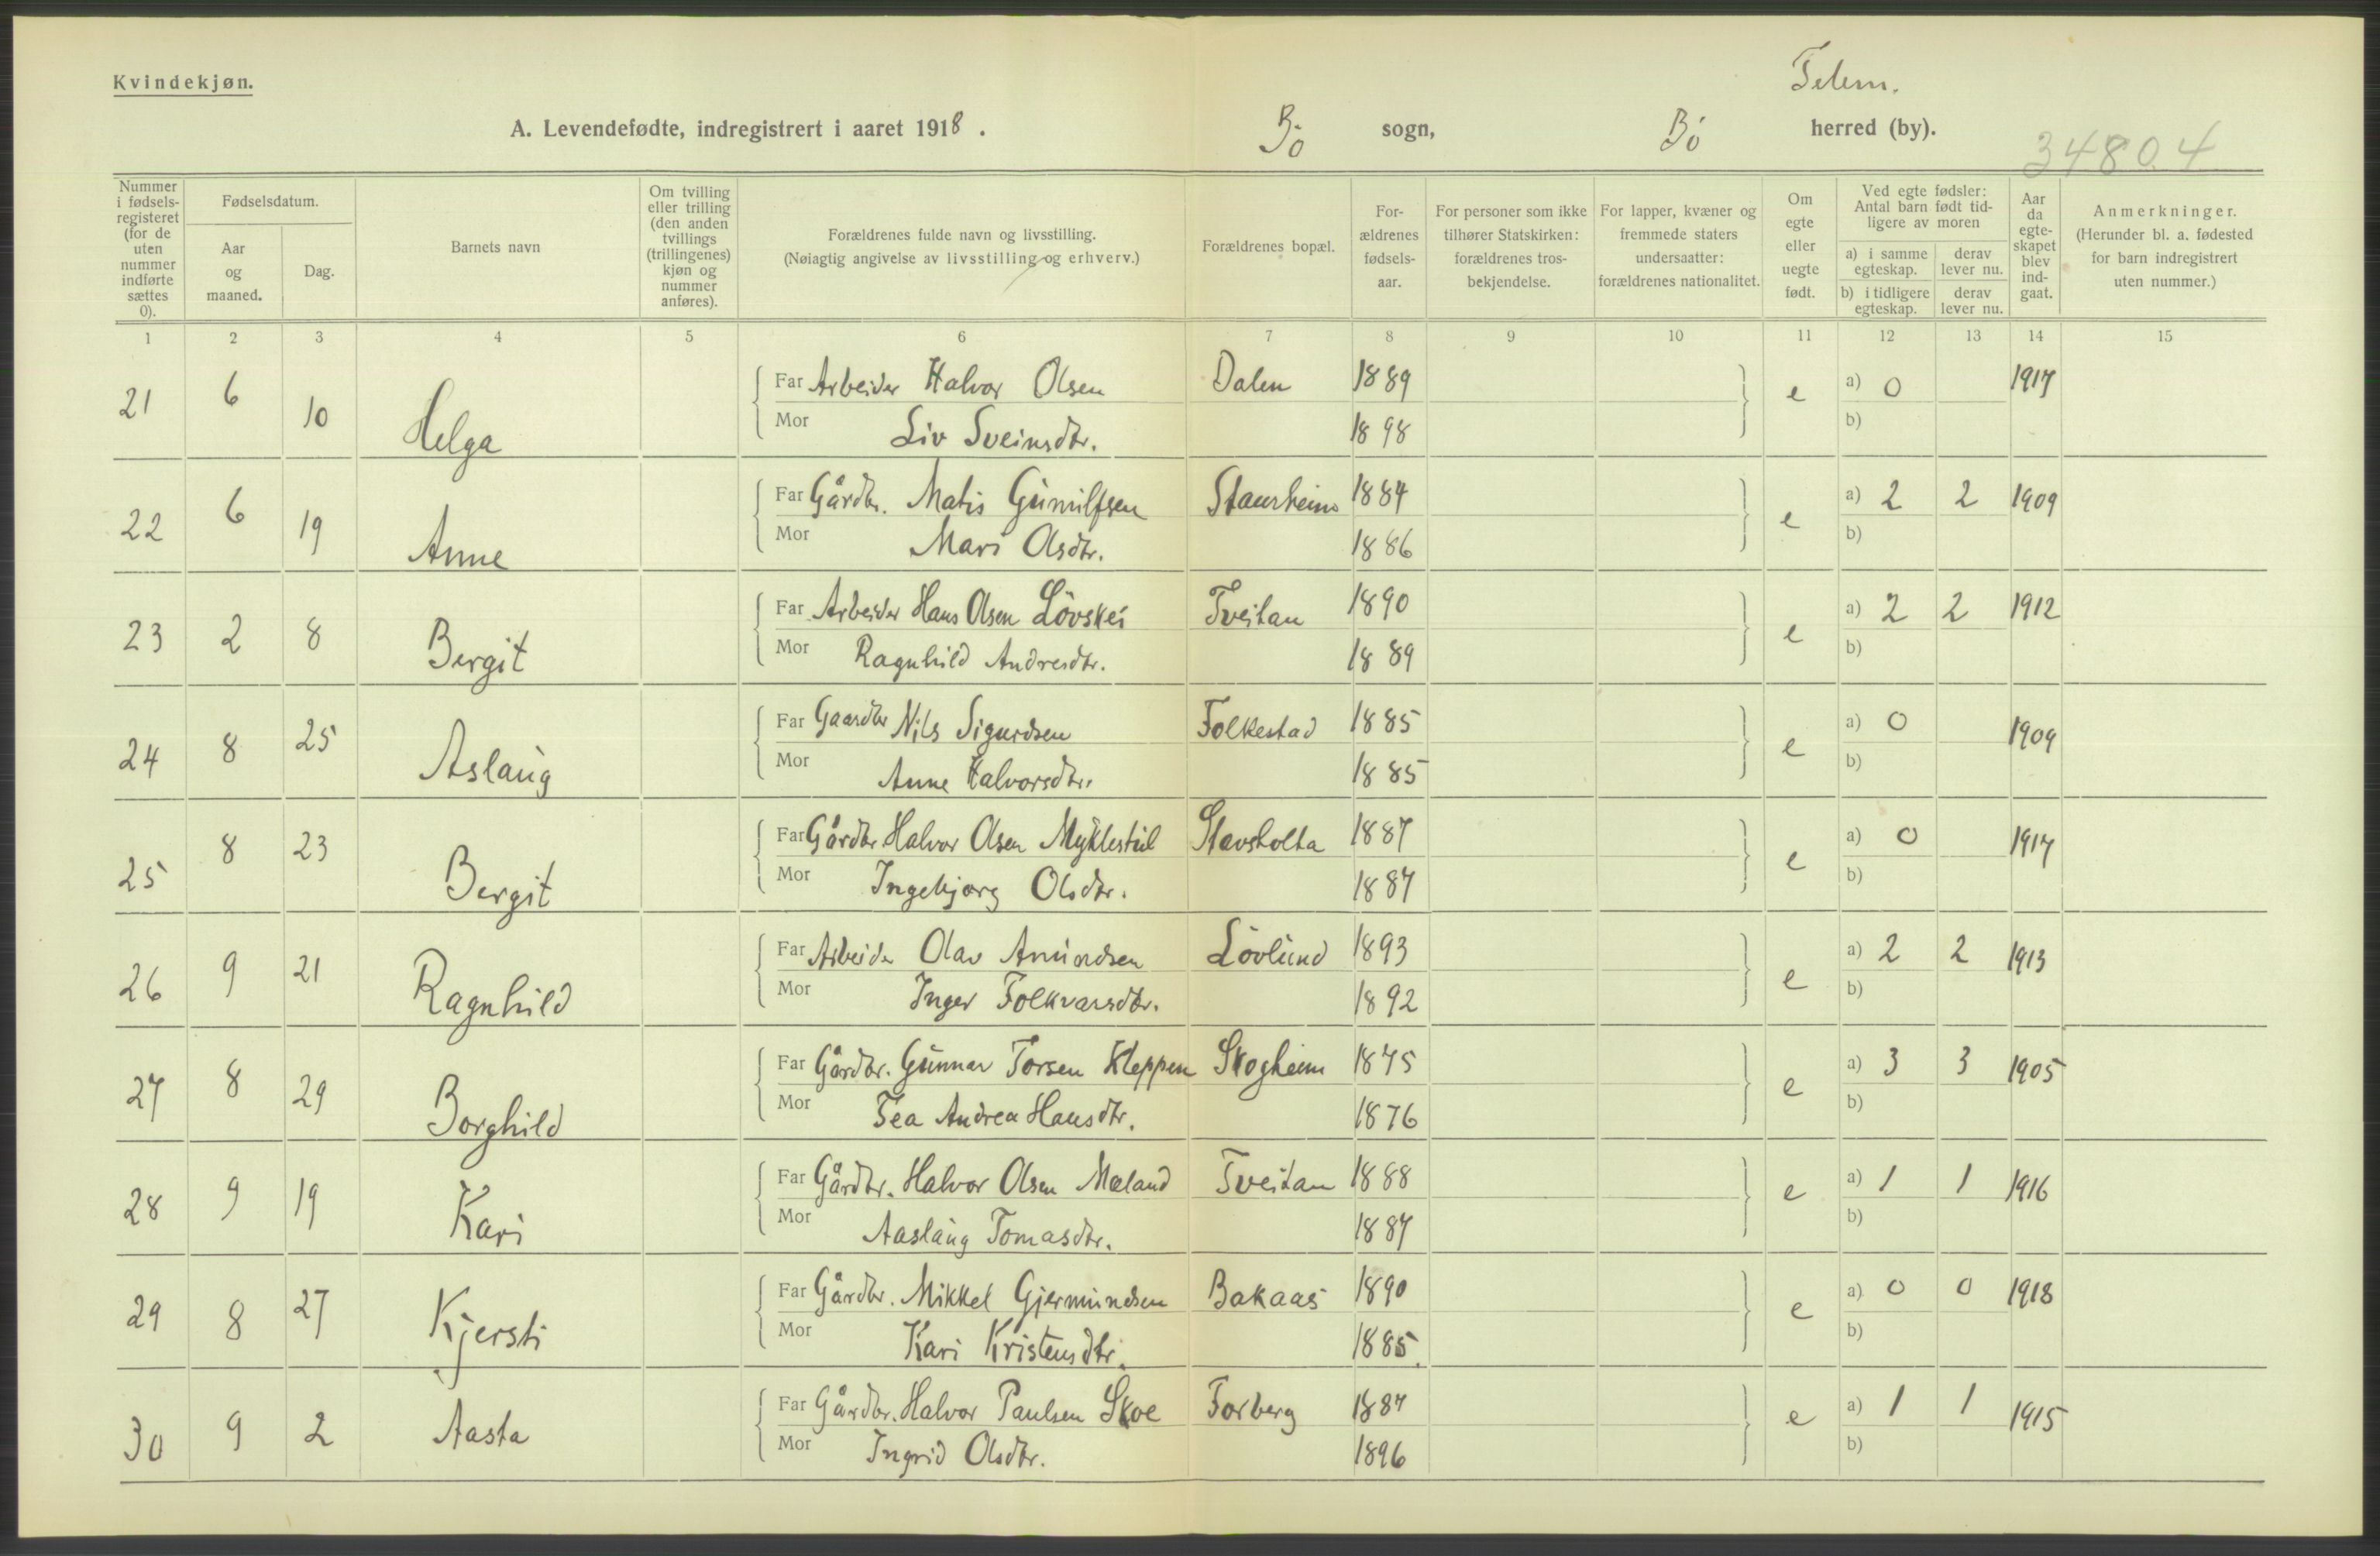 Kvindekjøn.
Telem.
A. Levendefødte, indregistrert i aaret 1918. Bö sogn, Bö herred (by).
34804
Nummer i fødselsregisteret (for de uten nummer indførte sættes 0).
Fødselsdatum.
Aar og maaned.
Dag.
Barnets navn
Om tvilling eller trilling (den anden tvillings (trillingenes) kjøn og nummer anføres).
Forældrenes fulde navn og livsstilling.
(Nøiagtig angivelse av livsstilling og erhverv.)
Forældrenes bopæl.
Forældrenes fødselsaar.
For personer som ikke tilhører Statskirken: forældrenes trosbekjendelse.
For lapper, kvæner og fremmede staters undersaatter: forældrenes nationalitet.
Om egte eller uegte født.
Ved egte fødsler: Antal barn født tidligere av moren
a) i samme egteskap.
derav lever nu.
b) i tidligere egteskap.
derav lever nu.
Aar da egteskapet blev indgaat.
Anmerkninger.
(Herunder bl. a. fødested for barn indregistrert uten nummer.)
1 2 3 4 5 6 7 8 9 10 11 12 13 14 15
21 6 10 Helga Far Arbeider Halvor Olsen Dalen 1889 e a) 0 1917
Mor Liv Sveinsdtr. 1898 b)
22 6 19 Anne Far Gårdbr. Matis Gunnulfsen Staurheim 1884 e a) 2 2 1909
Mor Mari Olsdtr. 1886 b)
23 2 8 Bergit Far Arbeider Hans Olsen Lövskei Tveitan 1890 e a) 2 2 1912
Mor Ragnhild Andresdtr. 1889 b)
24 8 25 Aslaug Far Gaardbr Nils Sigurdsen Folkestad 1885 e a) 0 1909
Mor Anne Halvorsdtr. 1885 b)
25 8 23 Bergit Far Gårdbr Halvor Olsen Myklestul Stavsholta 1887 e a) 0 1917
Mor Ingebjørg Olsdtr. 1887 b)
26 9 21 Ragnhild Far Arbeider Olav Amundsen Lövlund 1893 e a) 2 2 1913
Mor Inger Folkvarsdtr. 1892 b)
27 8 29 Borghild Far Gårdbr. Gunnar Torsen Kleppen Skogheim 1875 e a) 3 3 1905
Mor Tea Andrea Hansdtr. 1876 b)
28 9 19 Kari Far Gårdbr. Halvor Olsen Mæland Tveitan 1888 e a) 1 1 1916
Mor Aaslaug Tomasdtr. 1887 b)
29 8 27 Kjersti Far Gårdbr. Mikkel Gjermundsen Bakaas 1890 e a) 0 0 1918
Mor Kari Kristensdtr. 1885. b)
30 9 2 Aasta Far Gårdbr. Halvor Paulsen Skoe Forberg 1887 e a) 1 1 1915
Mor Ingrid Olsdtr. 1896 b)